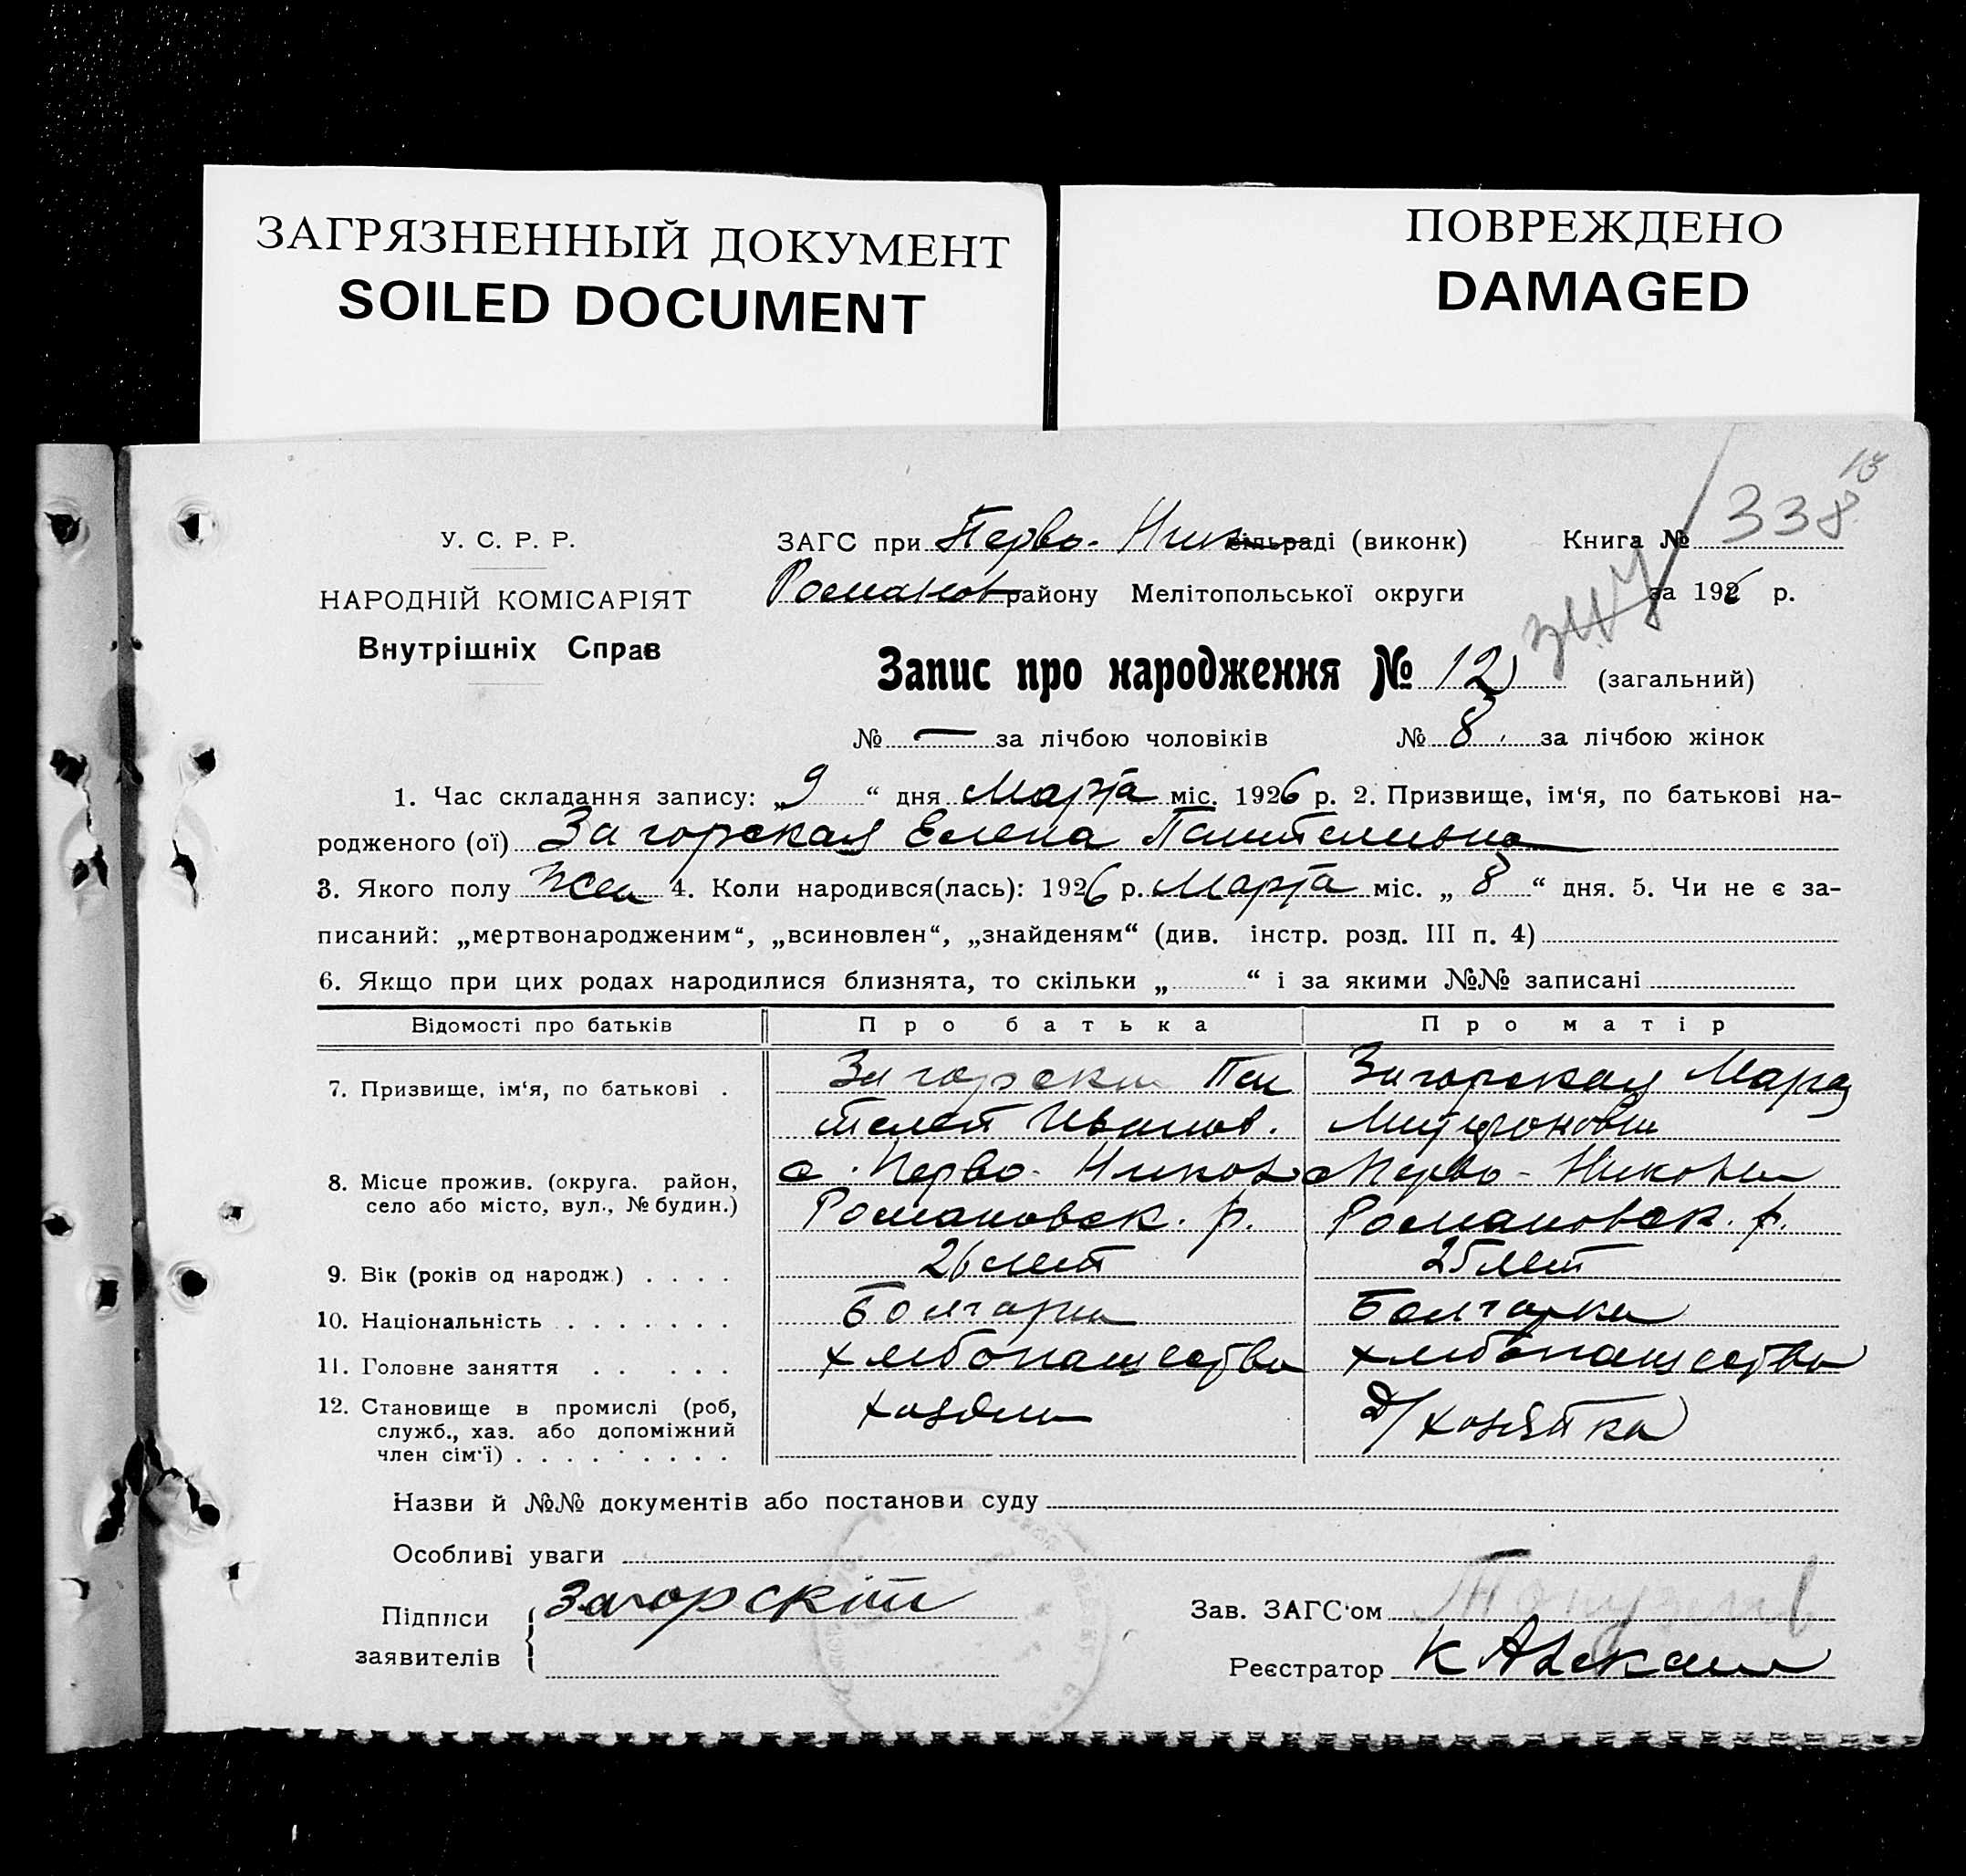 ЗАГРЯЗНЕННЫЙ ДОКУМЕНТ
SOILED DOCUMENT
ПОВРЕЖДЕНО
DAMAGED
338
У. С. Р. Р.
НАРОДНІЙ КОМІСАРІЯТ
Внутрішніх Справ
ЗАГС при Перво-Ник сільраді (виконк) Книга №
Романов району Мелітопольської округи за 1926 р.
Запис про народження № 12 (загальний)
№ — за лічбою чоловіків № 8 за лічбою жінок
1. Час складання запису: „9“ дня Марта міс. 1926 р. 2. Призвище, ім‘я, по батькові на-
родженого (ої) Загорская Елена Пантелиевна
3. Якого полу Жен 4. Коли народився(лась): 1926 р. Марта міс. „8“ дня. 5. Чи не є за-
писаний: „мертвонародженим“, „всиновлен“, „знайденям“ (див. інстр. розд. III п. 4)
6. Якщо при цих родах народилися близнята, то скільки „ “ і за якими №№ записані
Відомості про батьків Про батька Про матір
7. Призвище, ім‘я, по батькові . Загорский Пан Загорская Мария
телей Иванов. Митроновна
8. Місце прожив. (округа. район, с. Перво-Никол с Перво-Никола
село або місто, вул., № будин.) Романовск. р. Романовск. р.
9. Вік (років од народж.) . . . . 26 лет 25 лет
10. Національність . . . . . . . Болгарин Болгарка
11. Головне заняття . . . . . . Хлебопашество Хлебопашество
12. Становище в промислі (роб, хозяин Д/хозяйка
служб., хаз. або допоміжний
член сім‘ї) . . . . . . . .
Назви й №№ документів або постанови суду
Особливі уваги
Підписи Загорскій Зав. ЗАГС‘ом
заявителів Реєстратор